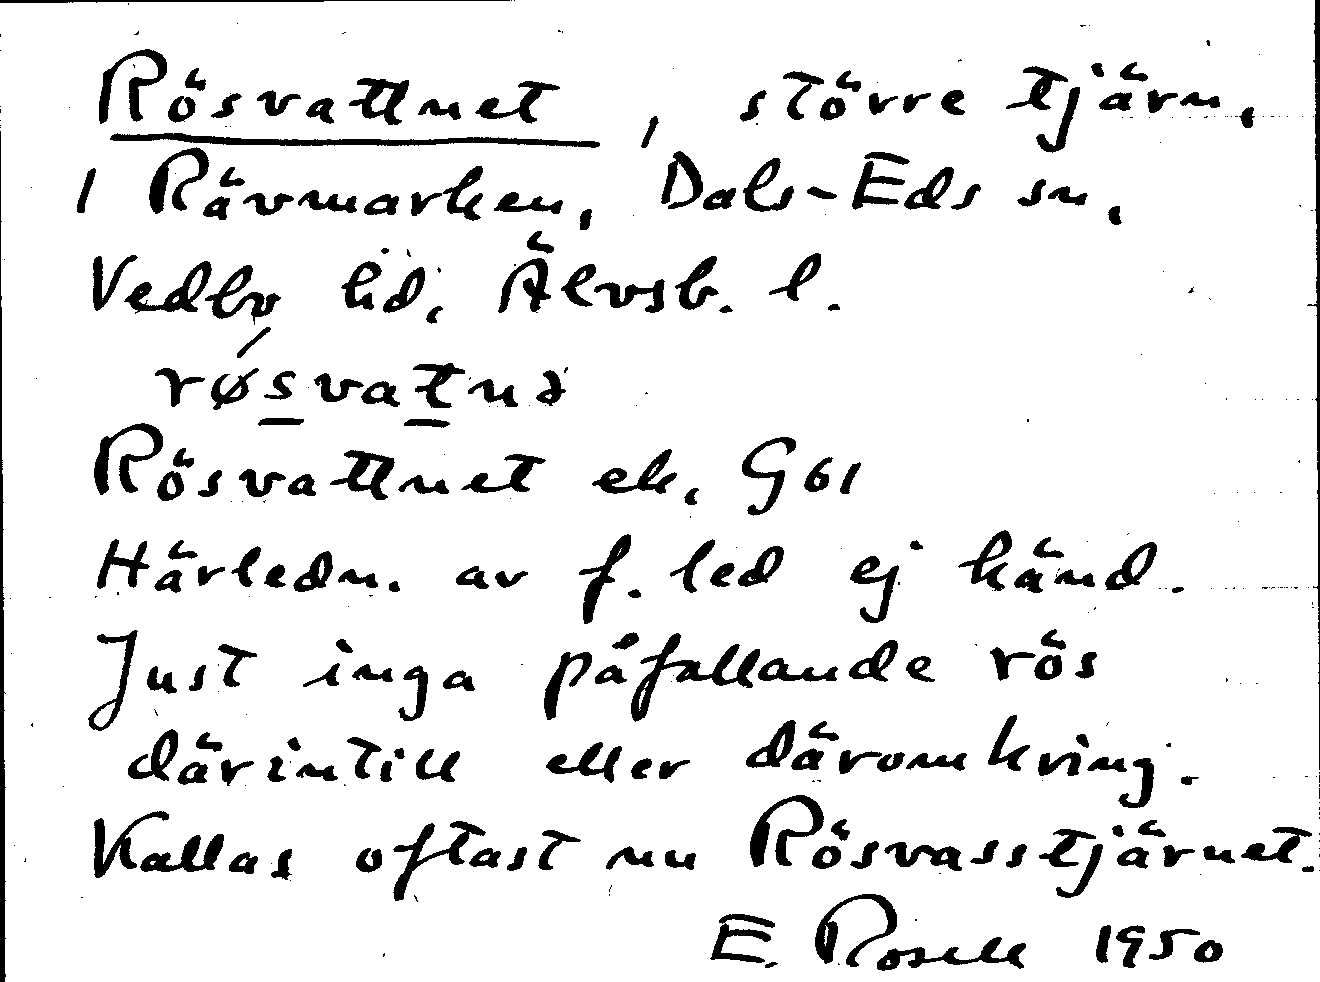 Rösvattnet, större tjärn,
i Rävmarken, Dals-Eds sn,
Vedbo hd, Älvsb. l.
røsvatnə
Rösvattnet ek. G 61
Härledn. av f. led ej känd.
Just inga påfallande rös
därintill eller däromkring.
Kallas oftast nu Rösvasstjärnet.
E. Rosell 1950